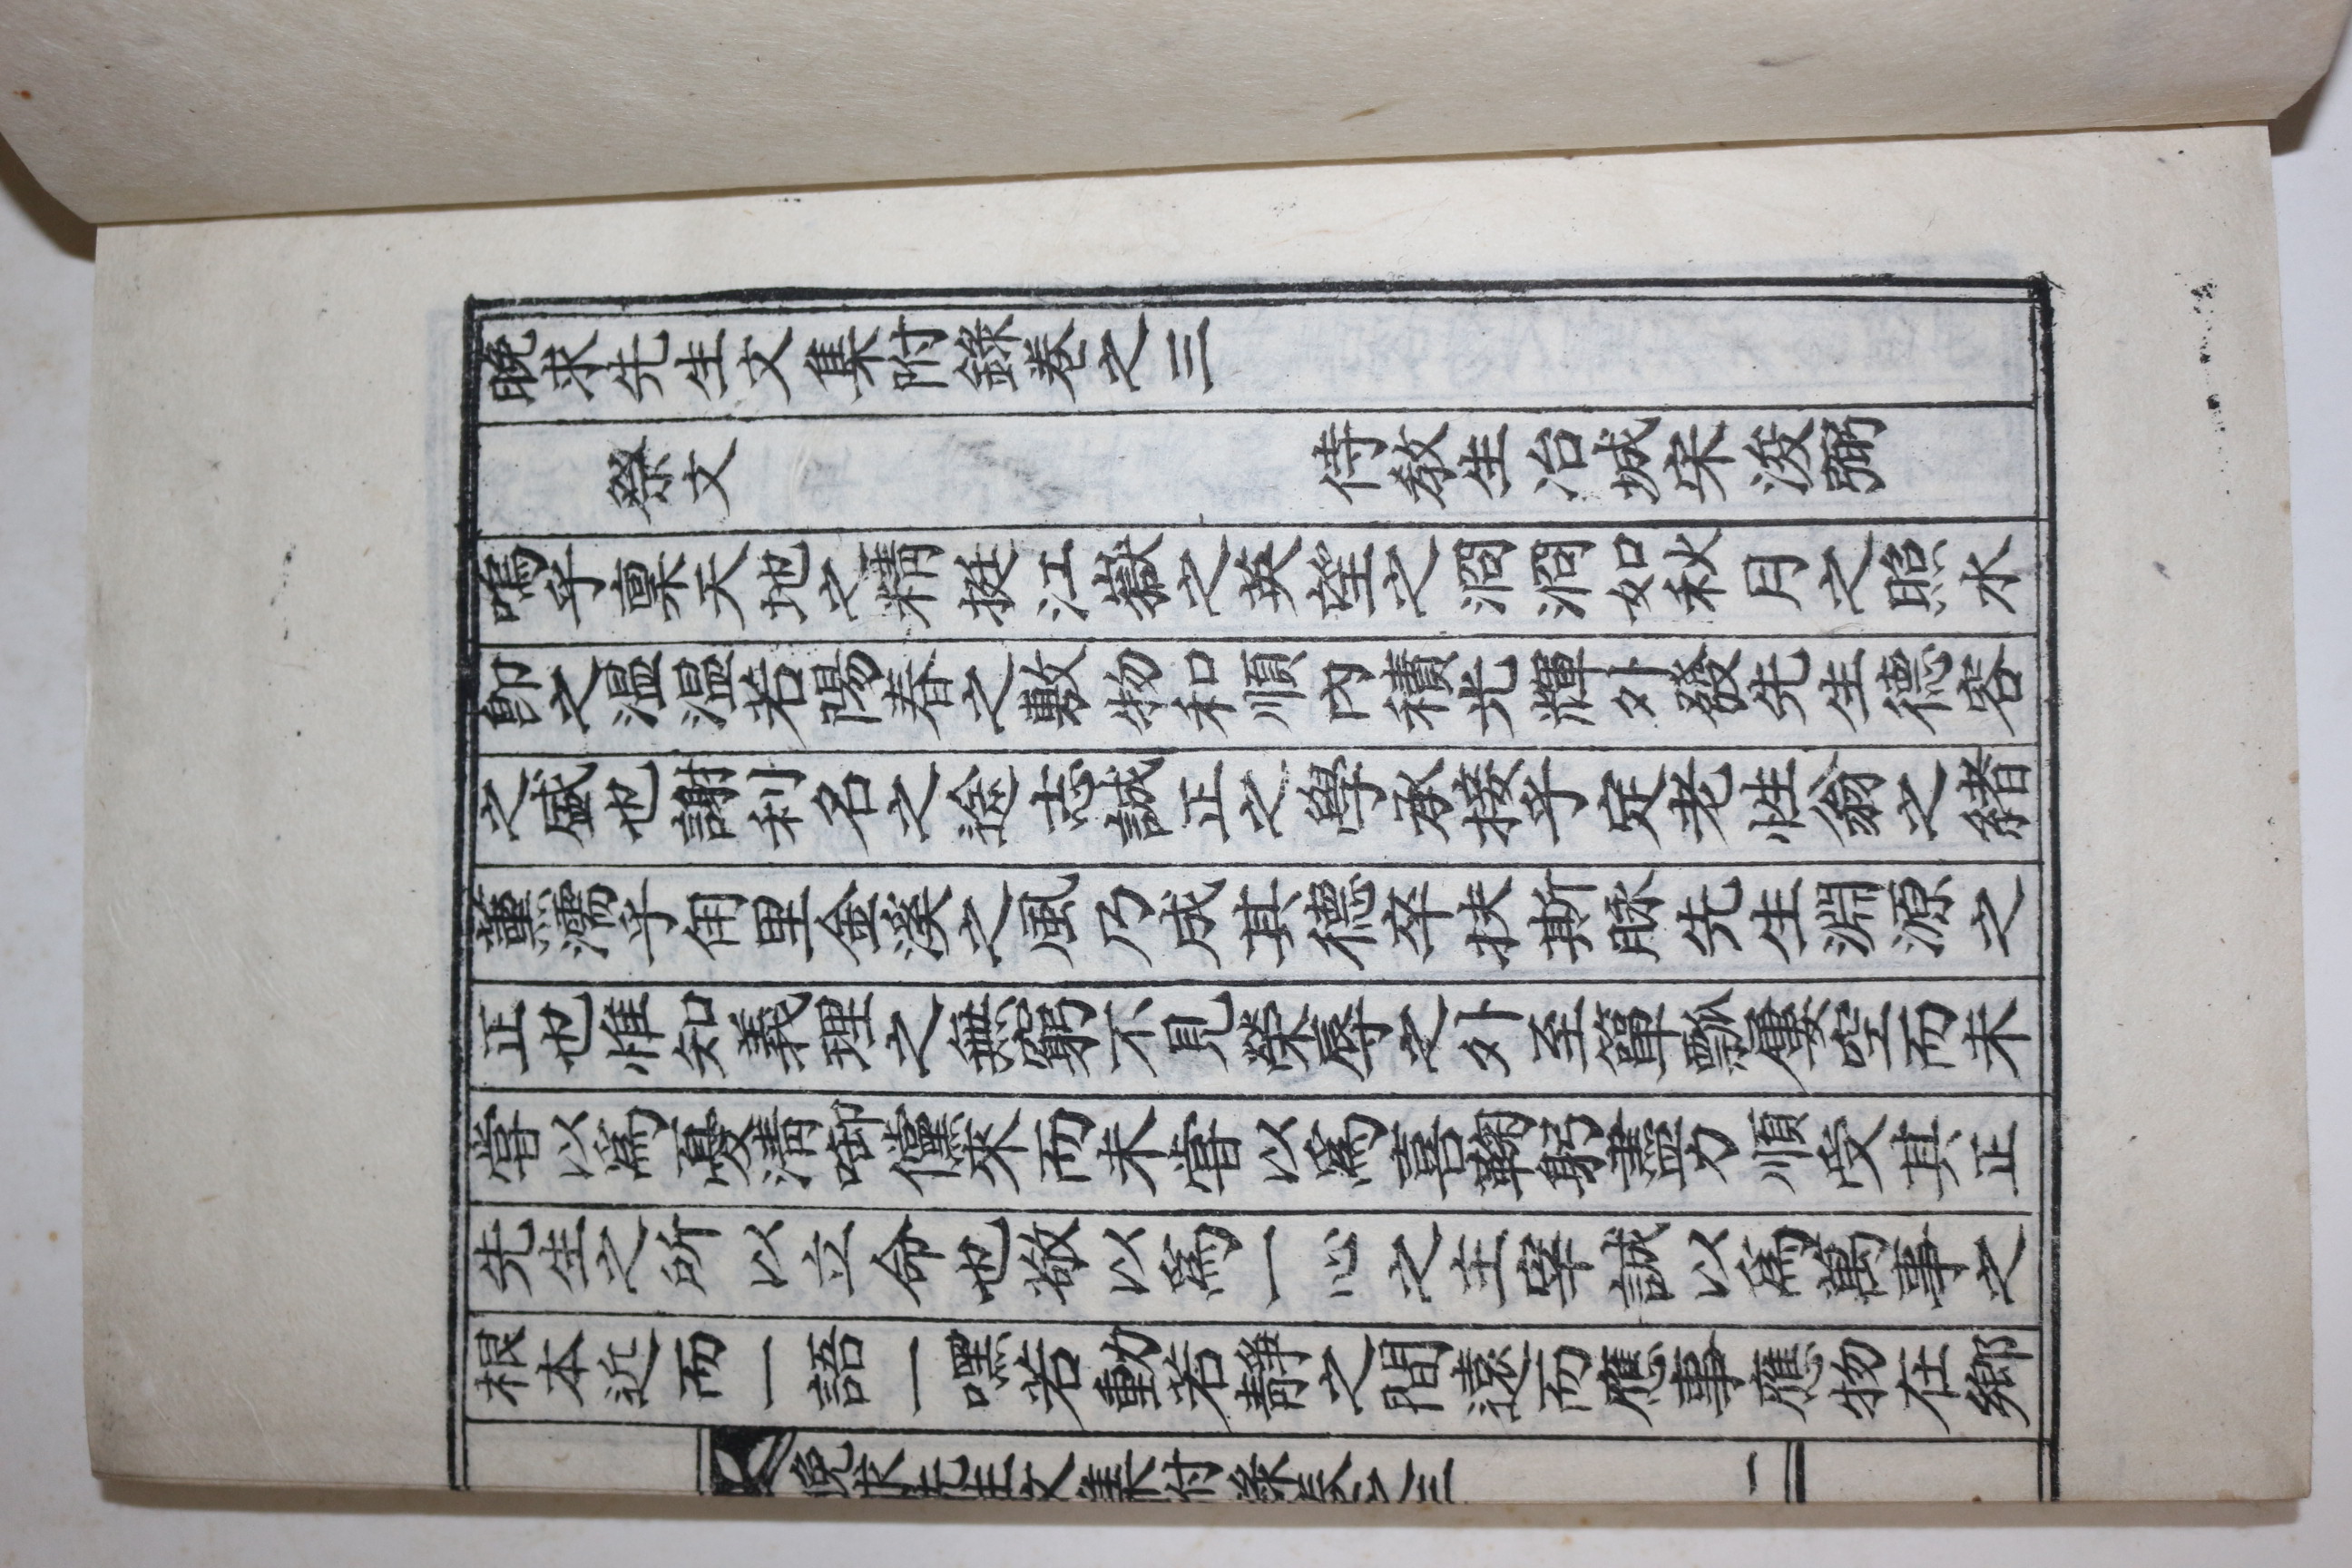 晩求先生文集附錄卷之三
祭文 侍教生冶城宋浚弼
嗚乎稟天地之精挺江嶽之英望之涸涸如秋月之照水
卽之溫溫若陽春之敷物和順內積光輝外發先生德容
之盛也謝利名之途志誠正之學承接乎定老性翁之緖
薰濡乎甪里金溪之風乃成其德卒扶斯脉先生淵源之
正也惟知義理之無窮不見榮辱之外至簞瓢屢空而未
嘗以爲憂淸啣儻來而未嘗以爲喜鞠躬盡力順受其正
先生之所以立命也敬以爲一心之主宰誠以爲萬事之
根本近而一語一嘿若動若靜之間遠而應事應物在鄕
晩求先生文集附錄卷之三 一